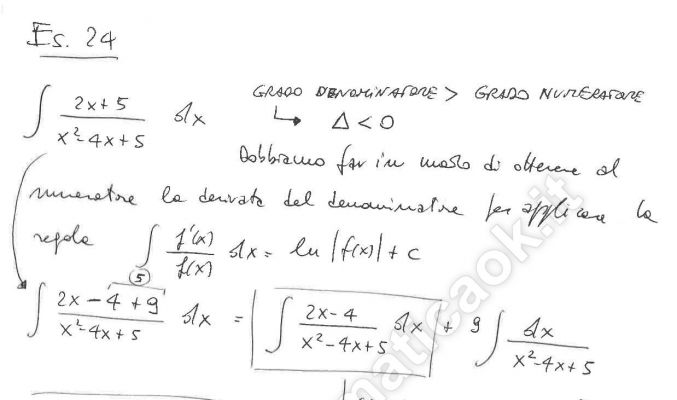 Es. 24
∫ (2x+5)/(x²-4x+5) dx GRADO DENOMINATORE > GRADO NUMERATORE
↳ Δ<0
Dobbiamo far in modo di ottenere al
numeratore la derivata del denominatore per applicare la
regola ∫ f'(x)/f(x) dx = ln |f(x)| + c
(5)
∫ (2x-4+9)/(x²-4x+5) dx = ∫ (2x-4)/(x²-4x+5) dx + 9 ∫ dx/(x²-4x+5)
maticaok.it